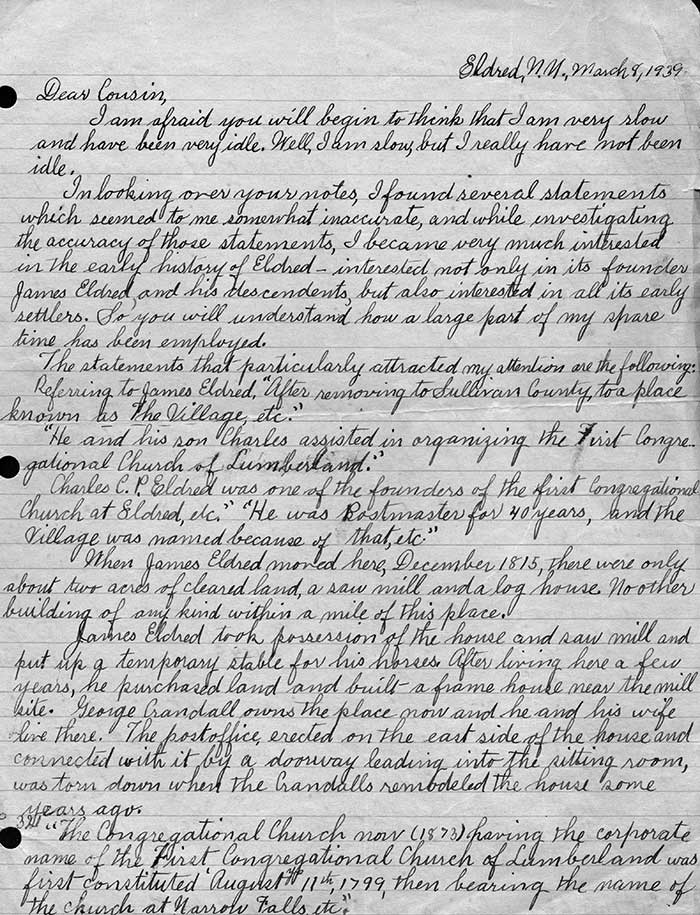 Eldred, N.Y., March 8, 1939
Dear Cousin,
I am afraid you will begin to think that I am very slow
and have been very idle. Well, I am slow, but I really have not been
idle.
In looking over your notes, I found several statements
which seemed to me somewhat inaccurate, and while investigating
the accuracy of those statements, I became very much interested
in the early history of Eldred - interested, not only in its founder
James Eldred, and his descendents, but also interested in all its early
settlers. So you will understand how a large part of my spare
time has been employed.
The statements that particularly attracted my attention are the following:
Referring to James Eldred, "After removing to Sullivan County, to a place
known as The Village, etc."
"He and his son Charles assisted in organizing the First Congre-
gational Church of Lumberland."
Charles C. P. Eldred was one of the founders of the first Congregational
Church at Eldred, etc." "He was Postmaster for 40 years, and the
Village was named because of that, etc."
When James Eldred moved here, December 1815, there were only
about two acres of cleared land, a saw mill and a log house. No other
building of any kind within a mile of this place.
James Eldred took possession of the house and saw mill and
put up a temporary stable for his horses. After living here a few
years, he purchased land and built a frame house near the mill
site. George Crandall owns the place now and he and his wife
live there. The postoffice, erected on the east side of the house and
connected with it by a doorway leading into the sitting room,
was torn down when the Crandalls remodeled the house some
years ago.
"The Congregational Church now (1873) having the corporate
name of the First Congregational Church of Lumberland was
first constituted August 11th, 1799, then bearing the name of
the church at Narrow Falls, etc."